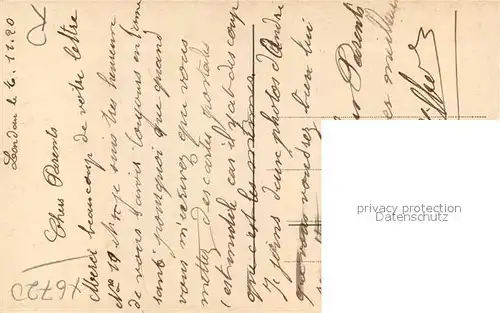 Landau le 6.12.20
Chers Parents
Merci beaucoup de votre lettre
No 19 et je suis très heureux
de vous savoir toujours en bonne
santé pourquoi que quand
vous m'écrivez que vous
mettez des cartes postales
c'est inutile car il y a des coup
que c'est les mêmes
Je joins d'une photos d'André
que vous voudrez bien lui
Parents
es meilleurs
X672D
privacy protection
Datenschutz